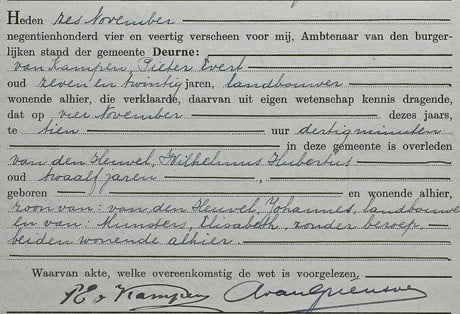 Heden zes November
negentienhonderd vier en veertig verscheen voor mij, Ambtenaar van den burger-
lijken stand der gemeente Deurne:
van Kampen, Pieter Evert
oud zeven en twintig jaren, landbouwer
wonende alhier, die verklaarde, daarvan uit eigen wetenschap kennis dragende,
dat op vier November dezes jaars,
te tien uur dertig minuten
in deze gemeente is overleden
van den Heuvel, Wilhelmus Hubertus
oud twaalf jaren,
geboren en wonende alhier,
zoon van: van den Heuvel, Johannes, landbouwer
en van: Munsters, Elisabeth, zonder beroep,
beiden wonende alhier.
Waarvan akte, welke overeenkomstig de wet is voorgelezen.
P E v Kampen